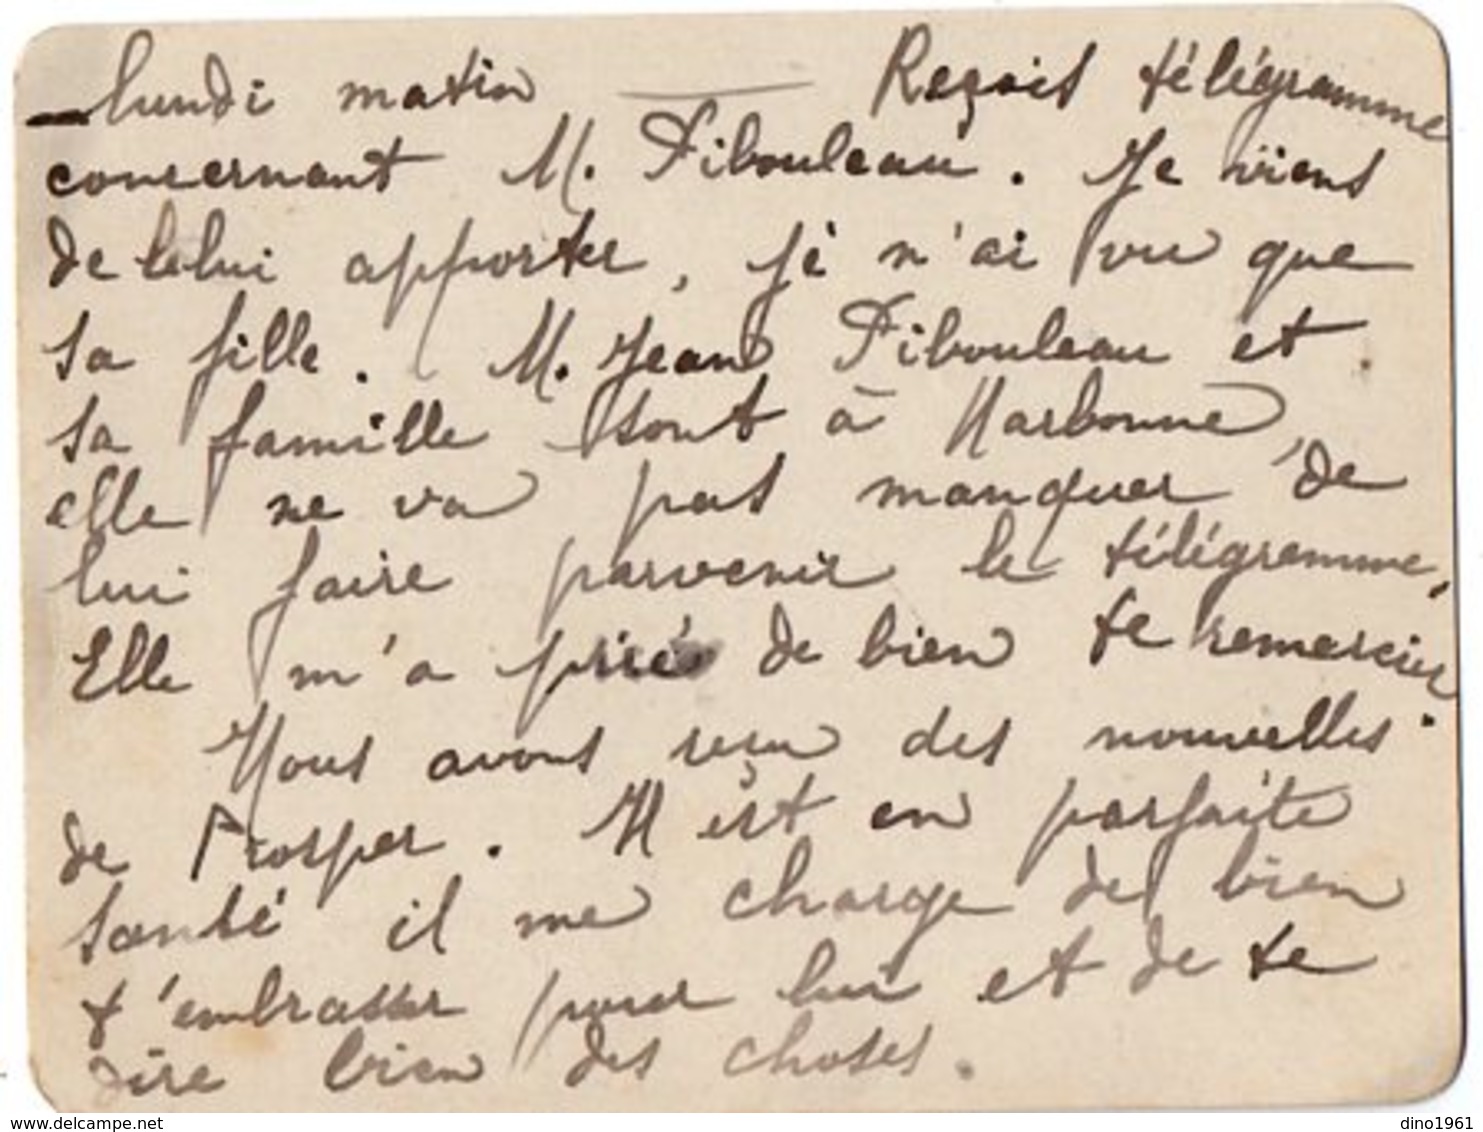 lundi matin — Reçois télégramme
concernant M. Fibouleau. Je viens
de le lui apporter, je n'ai vu que
sa fille. M. Jean Fibouleau et
sa famille sont à Narbonne,
elle ne va pas manquer de
lui faire parvenir le télégramme,
Elle m'a prié de bien te remercier.
Nous avons reçu des nouvelles
de Prosper. Il est en parfaite
santé il me charge de bien
t'embrasser pour lui et de te
dire bien des choses.
dino1961